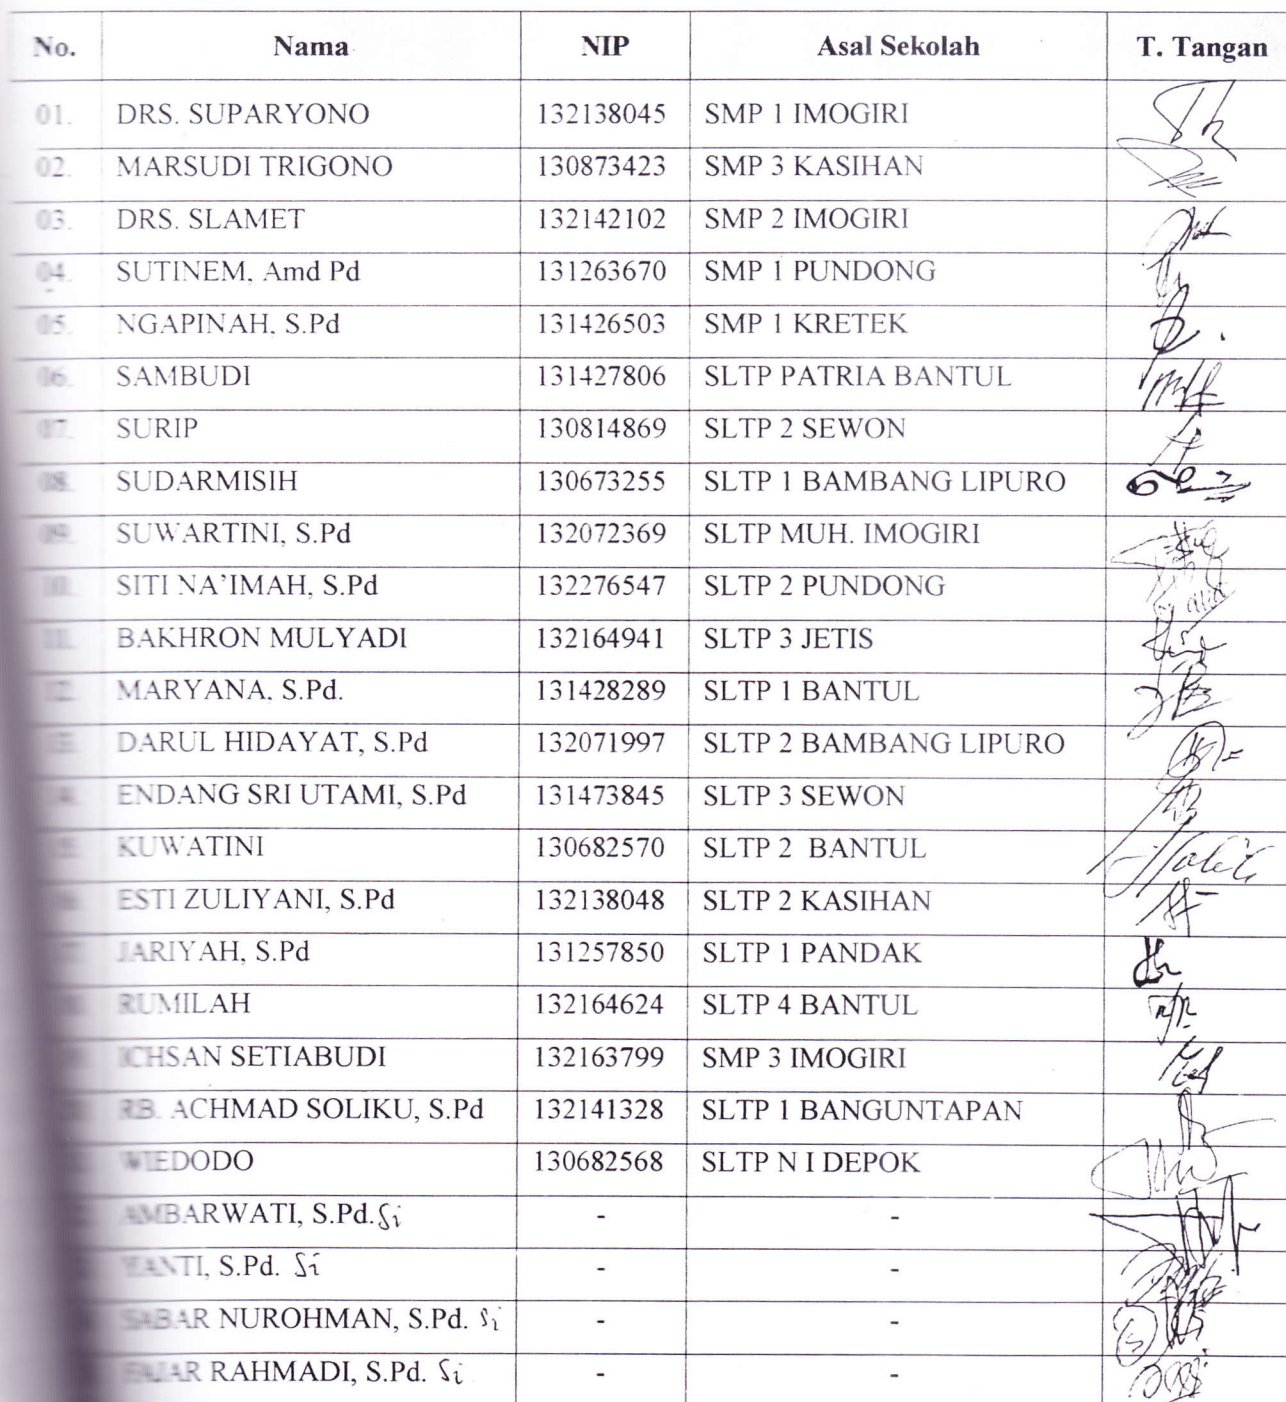 No. Nama NIP Asal Sekolah T. Tangan
01. DRS. SUPARYONO 132138045 SMP 1 IMOGIRI
02. MARSUDI TRIGONO 130873423 SMP 3 KASIHAN
03. DRS. SLAMET 132142102 SMP 2 IMOGIRI
04. SUTINEM, Amd Pd 131263670 SMP 1 PUNDONG
05. NGAPINAH, S.Pd 131426503 SMP 1 KRETEK
06. SAMBUDI 131427806 SLTP PATRIA BANTUL
07. SURIP 130814869 SLTP 2 SEWON
08. SUDARMISIH 130673255 SLTP 1 BAMBANG LIPURO
09. SUWARTINI, S.Pd 132072369 SLTP MUH. IMOGIRI
10. SITI NA'IMAH, S.Pd 132276547 SLTP 2 PUNDONG
11. BAKHRON MULYADI 132164941 SLTP 3 JETIS
12. MARYANA, S.Pd. 131428289 SLTP 1 BANTUL
13. DARUL HIDAYAT, S.Pd 132071997 SLTP 2 BAMBANG LIPURO
14. ENDANG SRI UTAMI, S.Pd 131473845 SLTP 3 SEWON
KUWATINI 130682570 SLTP 2 BANTUL
ESTI ZULIYANI, S.Pd 132138048 SLTP 2 KASIHAN
JARIYAH, S.Pd 131257850 SLTP 1 PANDAK
RUMILAH 132164624 SLTP 4 BANTUL
ICHSAN SETIABUDI 132163799 SMP 3 IMOGIRI
RB. ACHMAD SOLIKU, S.Pd 132141328 SLTP 1 BANGUNTAPAN
WIEDODO 130682568 SLTP N I DEPOK
AMBARWATI, S.Pd. Si - -
YANTI, S.Pd. Si - -
SABAR NUROHMAN, S.Pd. Si - -
FAJAR RAHMADI, S.Pd. Si - -